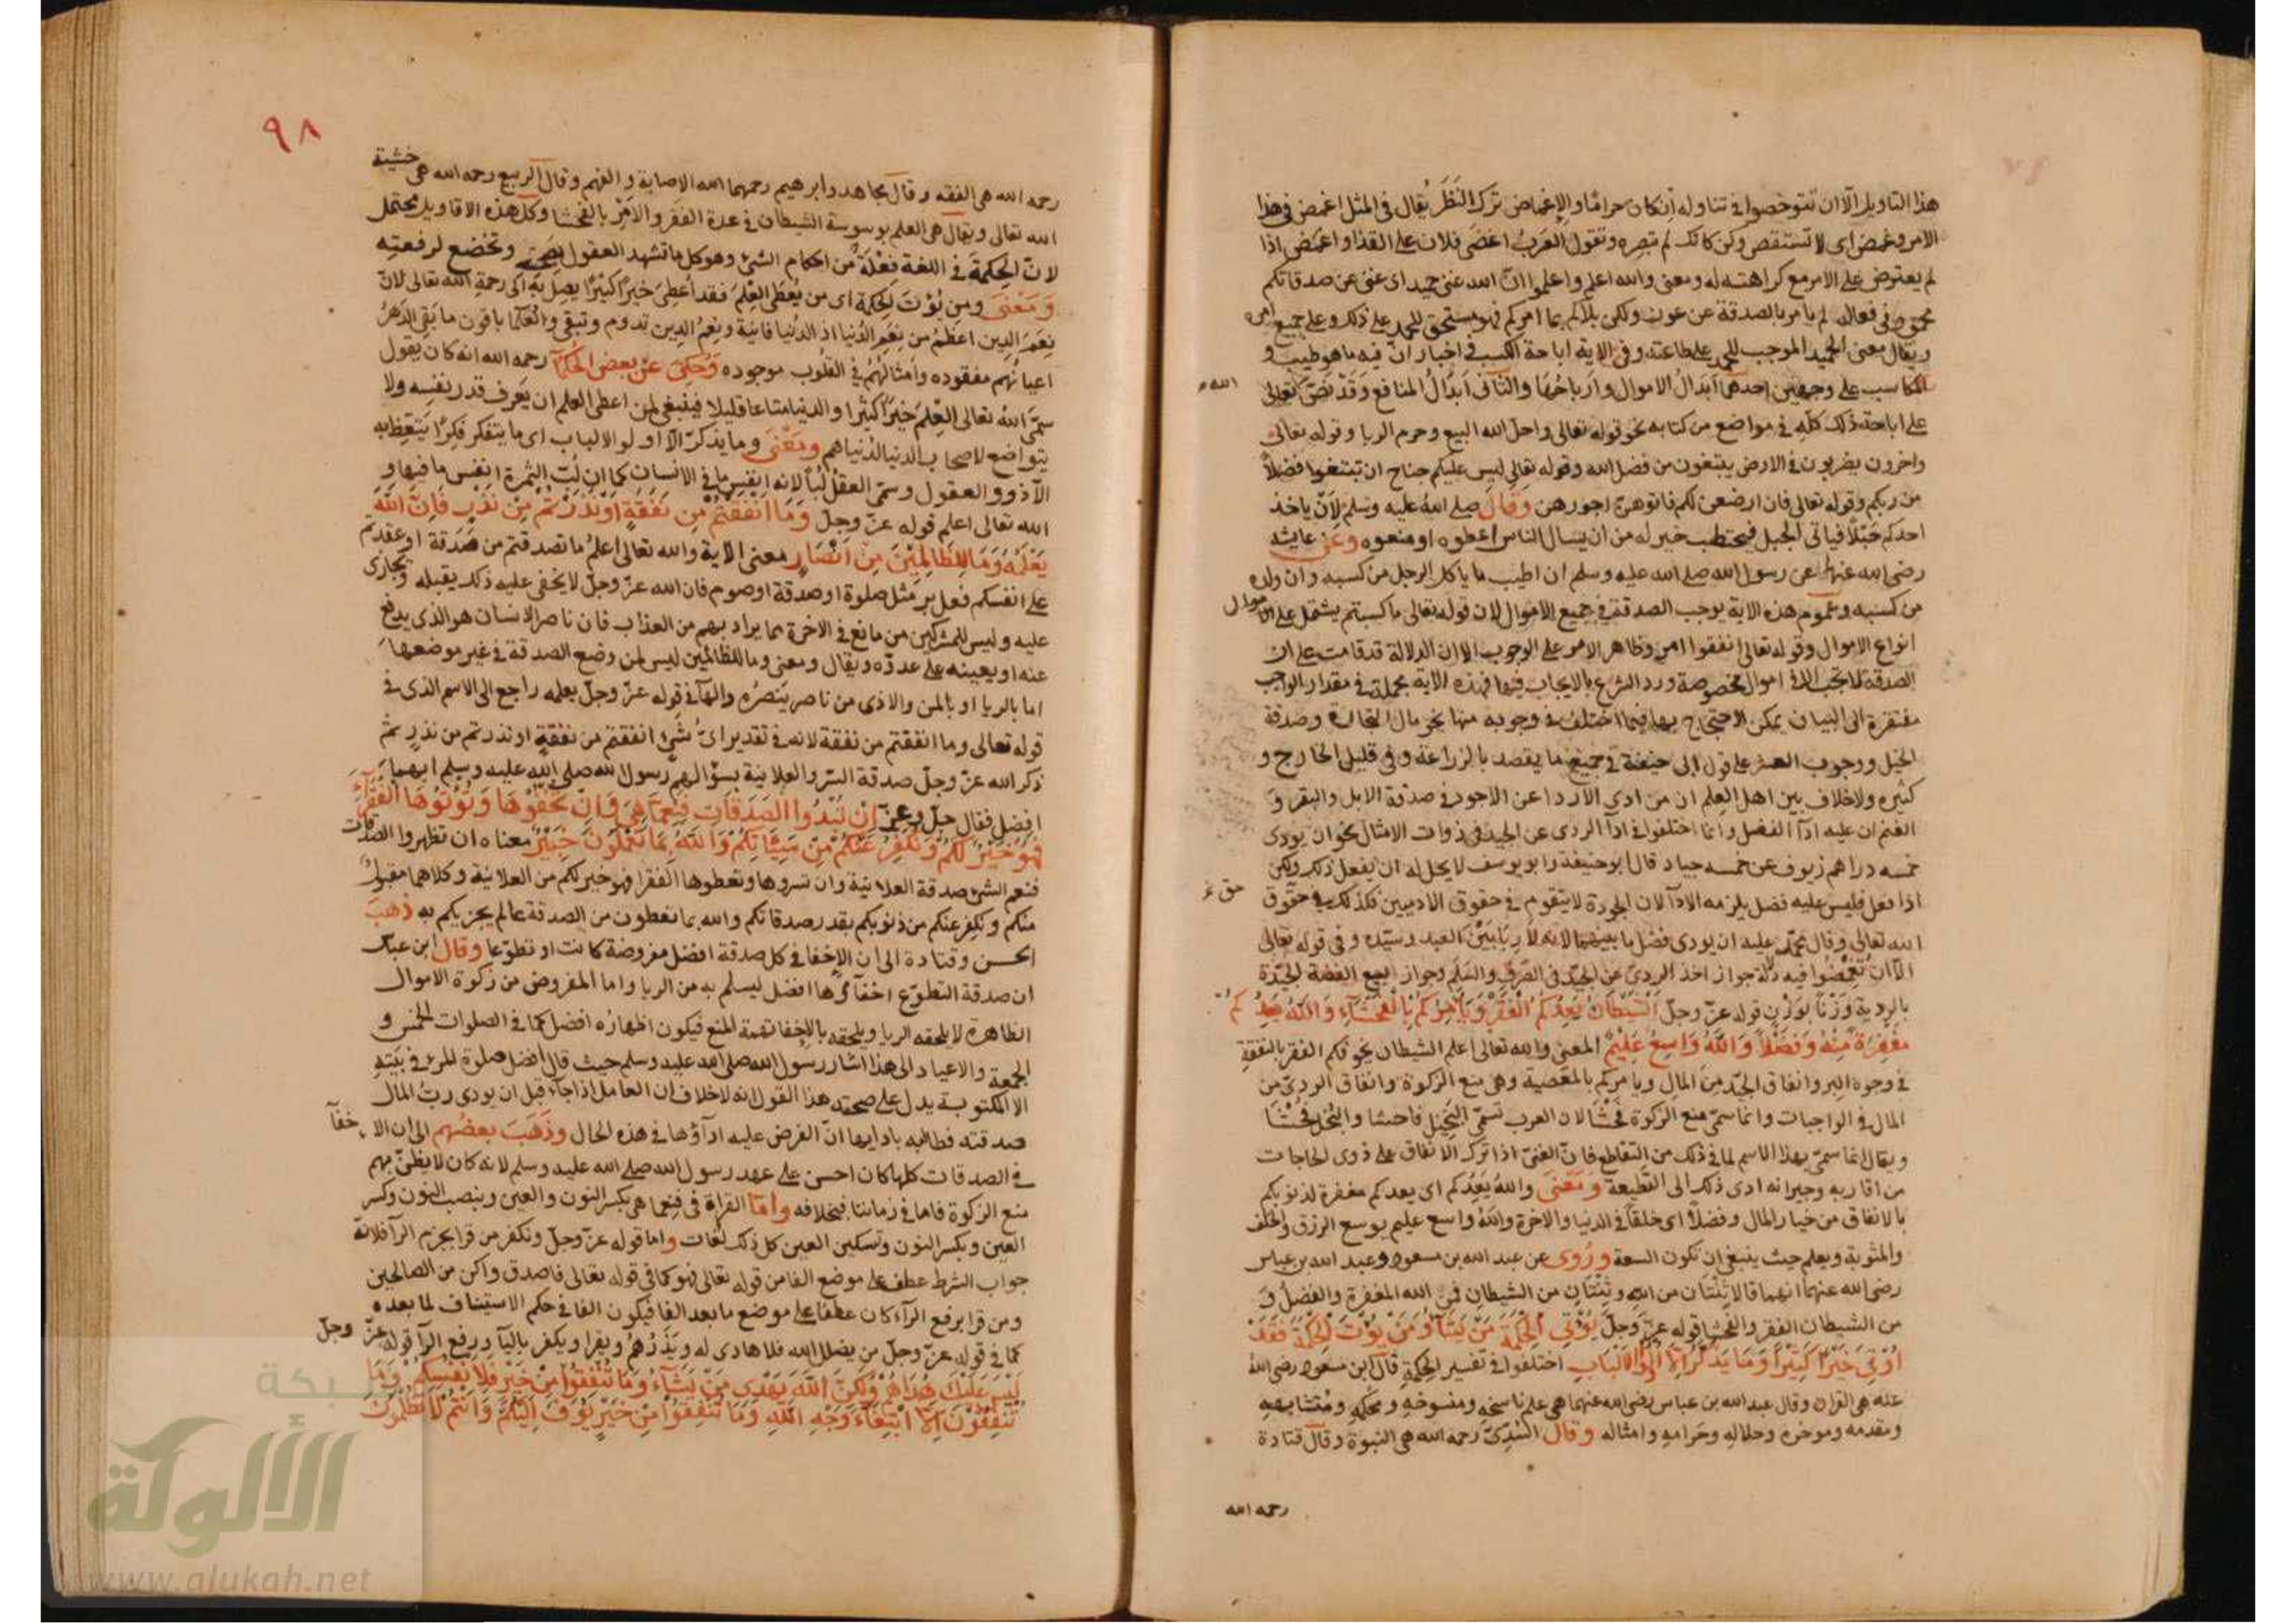 هذا التاويل الا ان تتوخصوا في تناوله ان كان حراما والاغماض ترك النظر يقال في المثل اغمض في هذا
الامر وغمض اى لا تستقص وكن كانك لم تبصره وتقول العرب اغضى فلان على القذا واغمض اذا
لم يعترض على الامر مع كراهته له ومعنى والله اعلم واعلموا ان الله غنى حميد اى غنى عن صدقاتكم
محمود فى فعاله لم يامر بالصدقة عن عوز ولكن بلاكم بما امركم فهو مستحق للحمد على ذلك وعلى جميع امره
ويقال معنى الحميد الموجب للحمد على طاعته وفى الاية اباحة الكسب فى اخبار ان فيه ما هو طيب و
المكاسب على وجهين احدهما ابدال الاموال وارباحها والثانى ابدال المنافع وقد نص الله تعالى
على اباحة ذلك كله فى مواضع من كتابه نحو قوله تعالى واحل الله البيع وحرم الربا وقوله تعالى
واخرون يضربون فى الارض يبتغون من فضل الله وقوله تعالى ليس عليكم جناح ان تبتغوا فضلا
من ربكم وقوله تعالى فان ارضعن لكم فاتوهن اجورهن وقال صلى الله عليه وسلم لان ياخذ
احدكم حبلا فياتى الجبل فيحتطب خير له من ان يسال الناس اعطوه او منعوه وعن عايشة
رضى الله عنها عن رسول الله صلى الله عليه وسلم ان اطيب ما ياكل الرجل من كسبه وان ولده
من كسبه وعموم هذه الاية يوجب الصدقة فى جميع الاموال لان قوله تعالى ما كسبتم يشتمل على الاموال
انواع الاموال وقوله تعالى انفقوا امر وظاهر الامر على الوجوب الا ان الدلالة قد قامت على ان
الصدقة لا تجب الا فى اموال مخصوصة ورد الشرع بالايجاب فيها فهذه الاية مجملة فى مقدار الواجب
مفتقرة الى البيان يمكن الاحتجاج بها فيما اختلف فى وجوبه منها نحو مال التجارة وصدقة
الخيل ووجوب العشر على قول ابى حنيفة فى جميع ما يقصد بالزراعة وفى قليل الخارج و
كثيره ولا خلاف بين اهل العلم ان من ادى الاردا عن الاجود فى صدقة الابل والبقر و
الغنم ان عليه ادآ الفضل وانما اختلفوا فى ادآ الردى عن الجيد فى ذوات الامثال نحو ان يودى
خمسة دراهم زيوف عن خمسة جياد قال ابو حنيفة وابو يوسف لا يحل له ان يفعل ذلك ولكن
اذا فعل فليس عليه فضل يلزمه الادآ لان الجودة لا يتقوم فى حقوق الادميين فكذلك فى حقوق
الله تعالى وقال محمد عليه ان يودى فضل ما بينهما لانه لا ربا بين العبد وسيده وفى قوله تعالى
الا ان تغمضوا فيه دلالة جواز اخذ الردى عن الجيد فى الصرف والسلم وجواز بيع الفضة الجيدة
بالردية وزنا بوزن قوله عز وجل الشيطان يعدكم الفقر ويامركم بالفحشاء والله يعدكم
مغفرة منه وفضلا والله واسع عليم المعنى والله تعالى اعلم الشيطان يخوفكم الفقر بالنفقة
فى وجوه البر وانفاق الجيد من المال ويامركم بالمعصية وهى منع الزكوة وانفاق الردى من
المال فى الواجبات وانما سمى منع الزكوة فحشا لان العرب تسمى البخيل فاحشا والبخل فحشا
ويقال انما سمى بهذا الاسم لما فى ذلك من التقاطع فان الغنى اذا ترك الانفاق على ذوى الحاجات
من اقاربه وجيرانه ادى ذلك الى القطيعة ومعنى والله يعدكم اى يعدكم مغفرة لذنوبكم
بالانفاق من خيار المال وفضلا اى خلفا فى الدنيا والاخرة والله واسع عليم يوسع الرزق والخلف
والمثوبة ويعلم حيث ينبغى ان تكون السعة وروى عن عبد الله بن مسعود وعبد الله بن عباس
رضى الله عنهما انهما قالا ثنتان من الله وثنتان من الشيطان فمن الله المغفرة والفضل و
من الشيطان الفقر والفحشا قوله عز وجل يؤتى الحكمة من يشآء ومن يؤت الحكمة فقد
اوتى خيرا كثيرا وما يذكر الا اولوا الالباب اختلفوا فى تفسير الحكمة قال ابن مسعود رضى الله
عنه هى القران وقال عبد الله بن عباس رضى الله عنهما هى علم ناسخه ومنسوخه ومحكمه ومتشابهه
ومقدمه وموخره وحلاله وحرامه وامثاله وقال السدى رحمه الله هى النبوة وقال قتادة
رحمه الله
٩٨
رحمه الله هى الفقه وقال مجاهد وابرهيم رحمهما الله الاصابة والفهم وقال الربيع رحمه الله هى خشية
الله تعالى ويقال هى العلم بوسوسة الشيطان فى عدة الفقر والامر بالفحشا وكل هذه الاقاويل محتمل
لان الحكمة فى اللغة فعلة من احكام الشئ وهو كل ما تشهد العقول بصحته وتخضع لرفعته
ومعنى ومن يؤت الحكمة اى من يعطى العلم فقد اعطى خيرا كثيرا يصل به الى رحمة الله تعالى لان
نعم الدين اعظم من نعم الدنيا اذ الدنيا فانية ونعم الدين تدوم وتبقى والعلما باقون ما بقى الدهر
اعيانهم مفقوده وامثالهم فى القلوب موجوده وحكى عن بعض الحكمآ رحمه الله انه كان يقول
سمى الله تعالى العلم خيرا كثيرا والدنيا متاعا قليلا فينبغى لمن اعطى العلم ان يعرف قدر نفسه ولا
يتواضع لاصحاب الدنيا لدنياهم ومعنى وما يذكر الا اولو الالباب اى ما يتفكر فكرا يتعظ به
الا ذوو العقول وسمى العقل لبا لانه انفس ما فى الانسان كما ان لب الثمرة انفس ما فيها و
الله تعالى اعلم قوله عز وجل وما انفقتم من نفقة او نذرتم من نذر فان الله
يعلمه وما للظالمين من انصار معنى الاية والله تعالى اعلم ما تصدقتم من صدقة او عقدتم
على انفسكم فعل بر مثل صلوة او صدقة او صوم فان الله عز وجل لا يخفى عليه ذلك يقبله ويجازى
عليه وليس للمشركين من مانع فى الاخرة مما يراد بهم من العذاب فان ناصر الانسان هو الذى يدفع
عنه او يعينه على عدوه ويقال ومعنى وما للظالمين ليس لمن وضع الصدقة فى غير موضعها
اما بالريا او بالمن والاذى من ناصر ينصره والهآ فى قوله عز وجل يعلمه راجع الى الاسم الذى فى
قوله تعالى وما انفقتم من نفقة لانه فى تقدير اى شئ انفقتم من نفقة او نذرتم من نذر ثم
ذكر الله عز وجل صدقة السر والعلانية بسؤالهم رسول الله صلى الله عليه وسلم ايهما
افضل فقال جل وعز ان تبدوا الصدقات فنعما هى وان تخفوها وتؤتوها الفقرآء
فهو خير لكم ونكفر عنكم من سيئاتكم والله بما تعملون خبير معناه ان تظهروا الصدقات
فنعم الشئ صدقة العلانية وان تسروها وتعطوها الفقرا فهو خير لكم من العلانية وكلاهما مقبول
منكم ونكفر عنكم من ذنوبكم بقدر صدقاتكم والله بما تعطون من الصدقة عالم يجزيكم به ذهب
الحسن وقتادة الى ان الاخفا فى كل صدقة افضل مفروضة كانت او تطوعا وقال ابن عباس
ان صدقة التطوع اخفآؤها افضل ليسلم به من الريا واما المفروض من زكوة الاموال
الظاهرة لا يلحقه الريا ويلحقه بالاخفا تهمة المنع فيكون اظهاره افضل كما فى الصلوات الخمس و
الجمعة والاعياد الى هذا اشار رسول الله صلى الله عليه وسلم حيث قال افضل صلوة المرء فى بيته
الا المكتوبة يدل على صحة هذا القول انه لا خلاف ان العامل اذا جآء قبل ان يودى رب المال
صدقته فطالبه بادايها ان الفرض عليه ادآؤها فى هذه الحال وذهب بعضهم الى ان الاخفآ
فى الصدقات كلها كان احسن على عهد رسول الله صلى الله عليه وسلم لانه كان لا يظن بهم
منع الزكوة فاما فى زماننا فبخلافه واما القراة فى فنعما هى بكسر النون والعين وبنصب النون وكسر
العين وبكسر النون وتسكين العين كل ذلك لغات واما قوله عز وجل ونكفر من قرا بجزم الرآ فلانه
جواب الشرط عطف على موضع الفا من قوله تعالى فهو كما فى قوله تعالى فاصدق واكن من الصالحين
ومن قرا برفع الرآء كان عطفا على موضع ما بعد الفا فيكون الفا فى حكم الاستيناف لما بعده
كما فى قوله عز وجل من يضلل الله فلا هادى له ويذرهم ويقرا ويكفر باليآ ورفع الرآ قوله عز وجل
ليس عليك هداهم ولكن الله يهدى من يشآء وما تنفقوا من خير فلانفسكم وما
تنفقون الا ابتغآء وجه الله وما تنفقوا من خير يوف اليكم وانتم لا تظلمون
شبكة
الألوكة
www.alukah.net